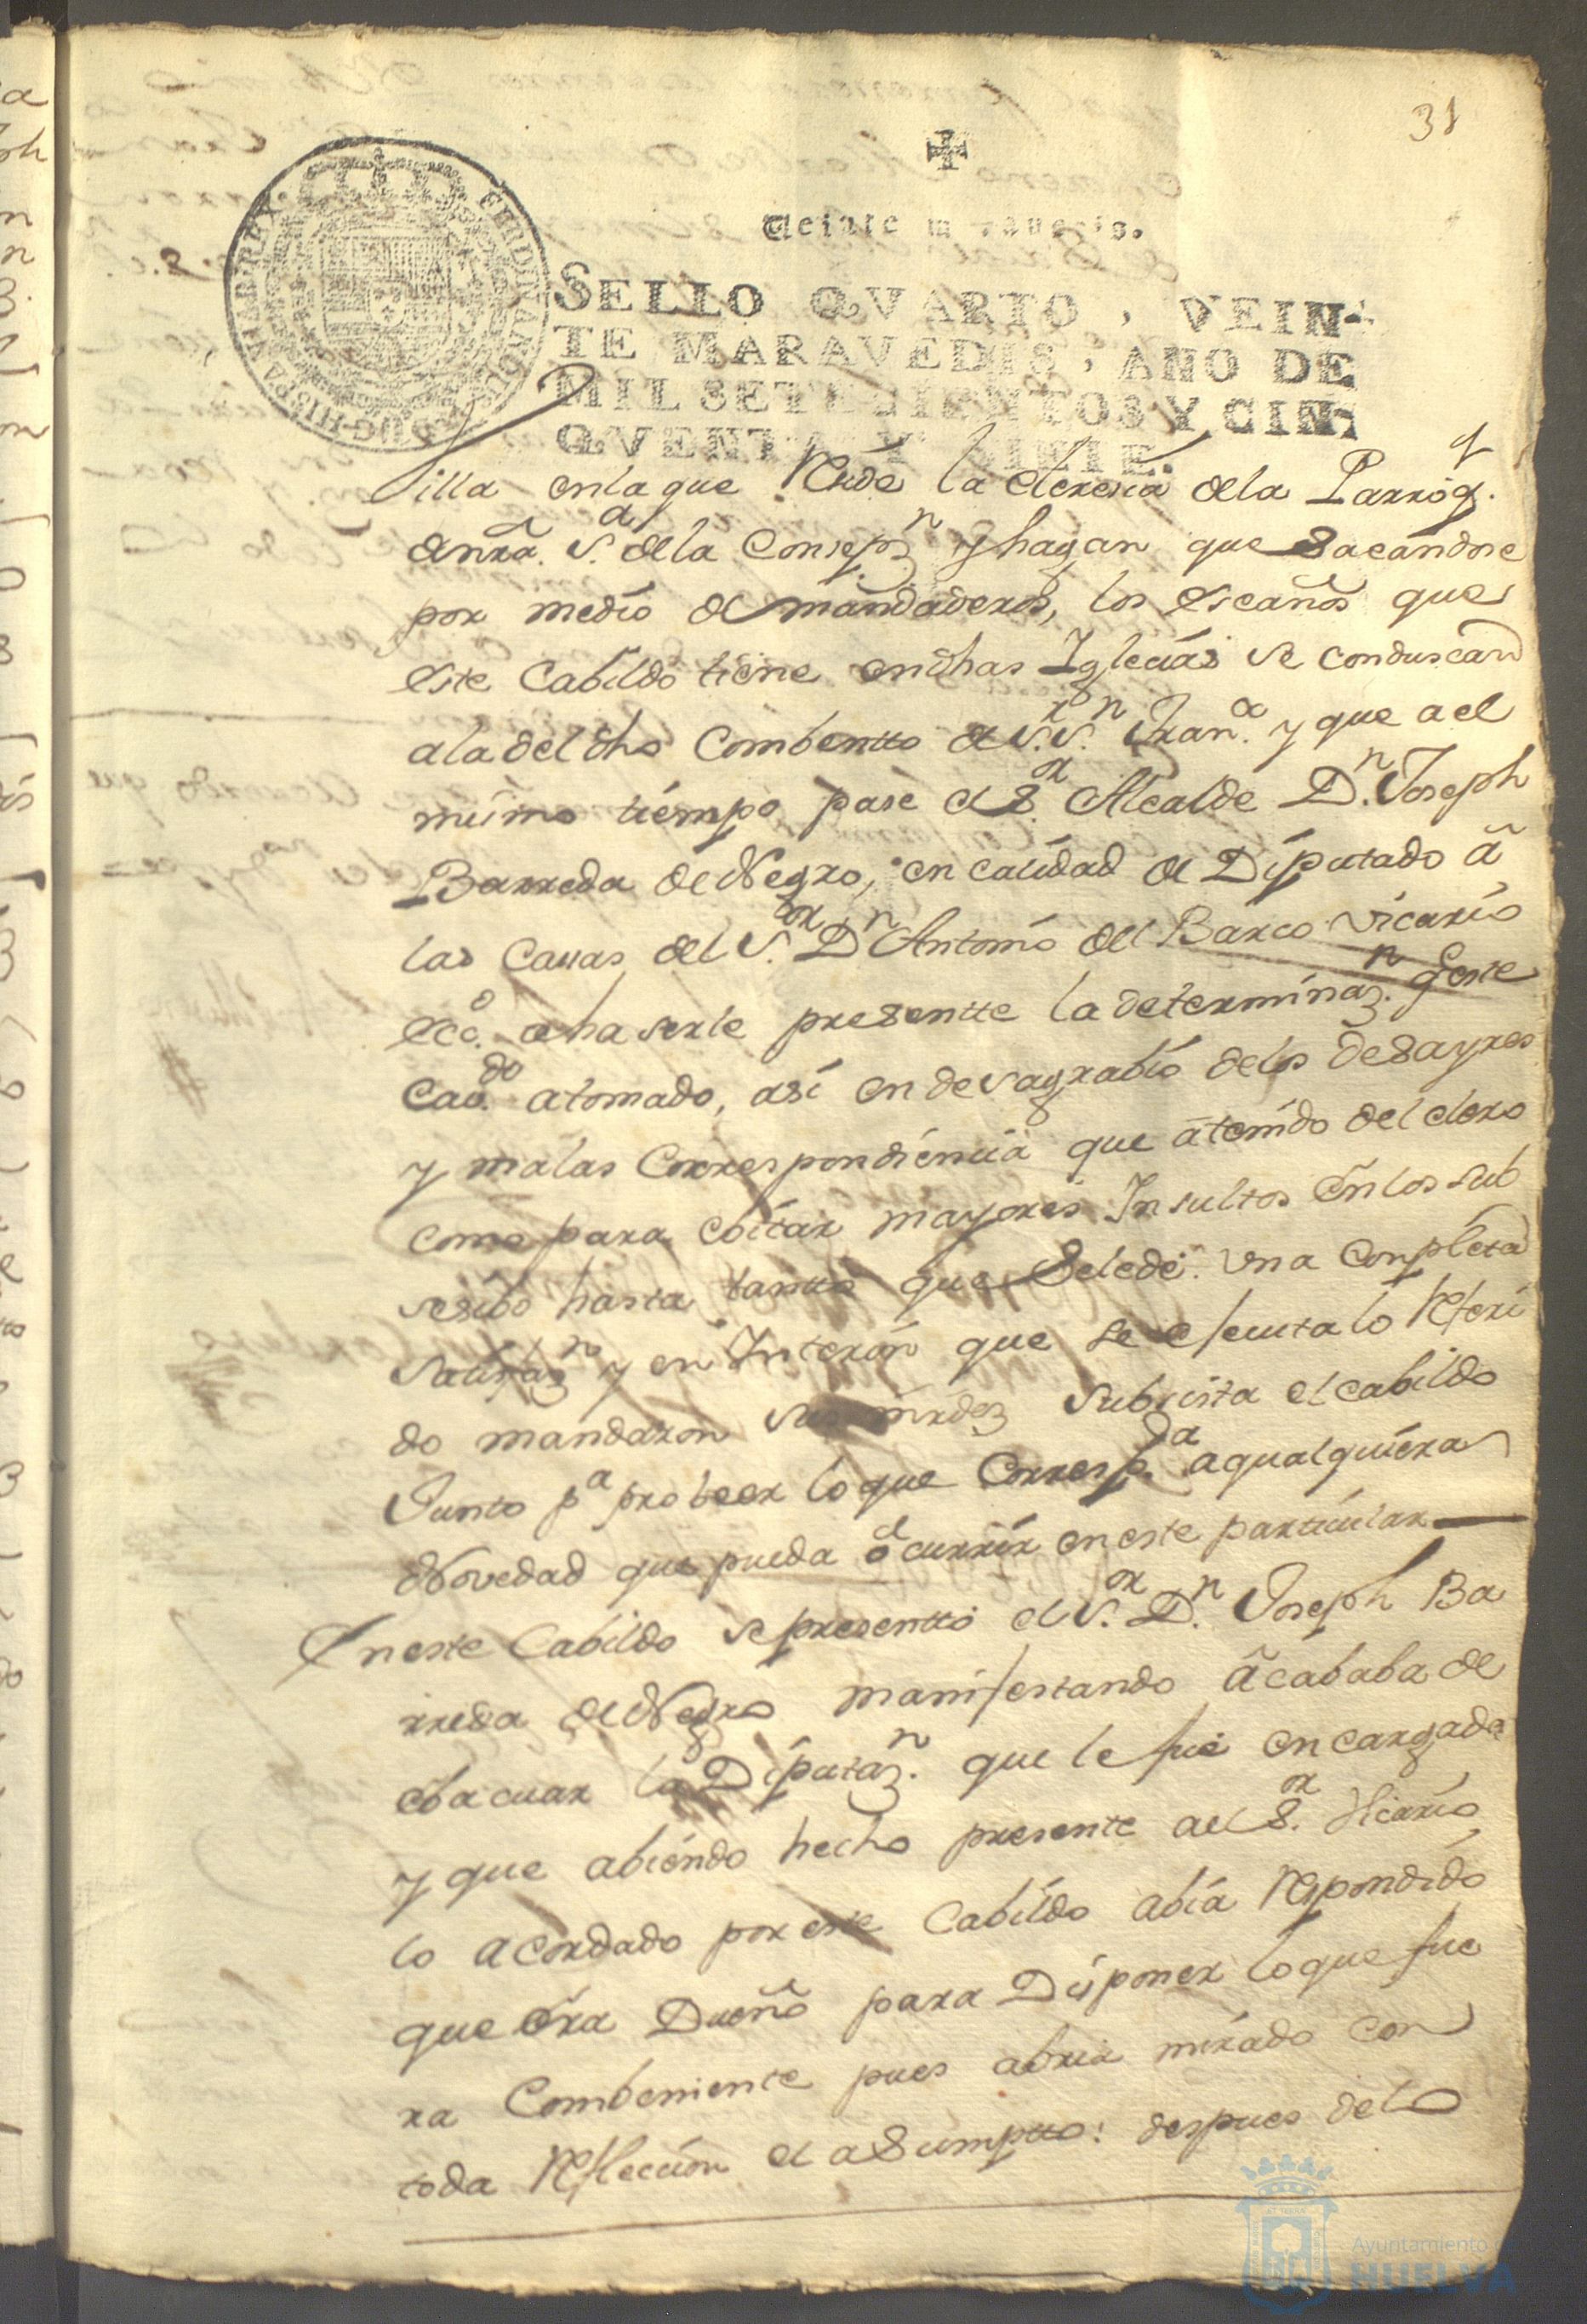 31
Veinte maravedis.
FERDINANDUS VI D G HISPANIAR REX
SELLO QVARTO, VEIN-
TE MARAVEDIS, AÑO DE
MIL SETECIENTOS Y CIN-
QVENTA Y SIETE.
Villa enlaque Reside la Cleresia dela Parroq.
denrra. S.ª dela Consepz.n y hagan que sacandose
por medio de mandaderos, los escaños que
este Cabildo tiene endhas Iglecias se conduscan
ala del dho Combentto de N. S. Fran.co y que a el
mismo tiempo pase el S.or Alcalde D.n Joseph
Barreda de Negro, en calidad de Diputado â
las Casas del S.or D.n Antonio del Barco Vicario
ecc.o a haserle presentte la determinaz.n q este
Cav.do atomado, asi en desagrabio delos desayres
y malas Correspondiencia que atenido del clero
como para evitar mayores Insultos en los sub
sesibo hasta tantto que sele dé una Conpleta
satisfaz.n y en Interin que se ejecuta lo Referi
do mandaron sus mrdez Subsista el cabildo
Junto p.a probeer lo que Corresp.da aqualquiera
Novedad que pueda ocurrir en este particular
En este Cabildo se presentto el S.or D.n Joseph Ba
rreda de Negro manifestando âcababa de
ebacuar la Diputaz.n que le fue encargada
y que abiendo hecho presente al S.or Vicario
lo acordado por este Cabildo abia Respondido
que era Dueño para Disponer lo que fue
ra Combeniente pues abria mirado con
toda Reflecion el asumptto: despues delo
Ayuntamiento
HUELVA